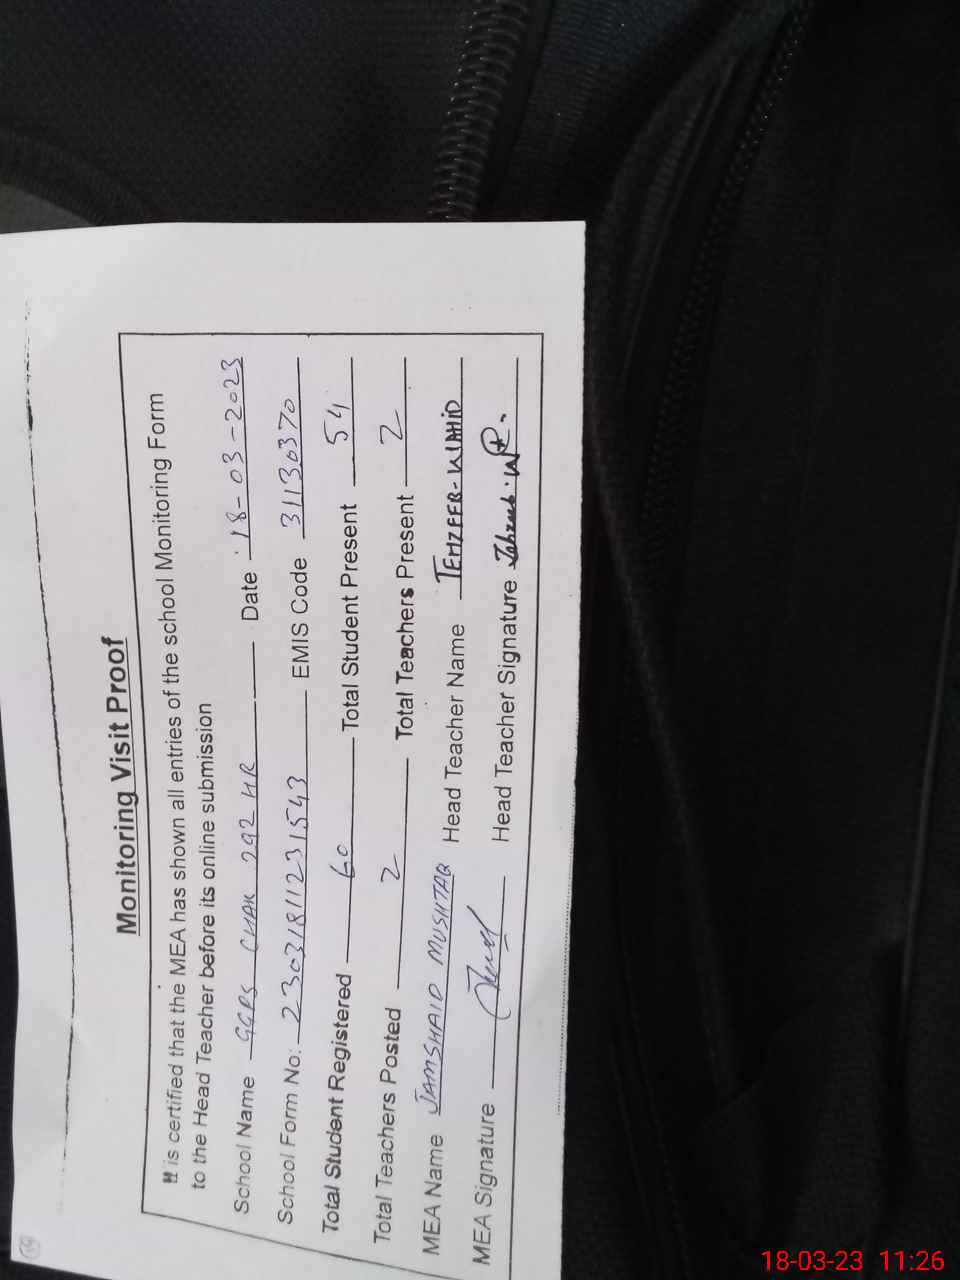 Monitoring Visit Proof
It is certified that the MEA has shown all entries of the school Monitoring Form
to the Head Teacher before its online submission
School Name GGPS CHAK 292 HR Date 18-03-2023
School Form No: 2303181123 1543 EMIS Code 31130370
Total Student Registered 60 Total Student Present 54
Total Teachers Posted 2 Total Teachers Present 2
MEA Name JAMSHAID MUSHTAQ Head Teacher Name TEHZEEB-WAHID
MEA Signature Head Teacher Signature
18-03-23 11:26